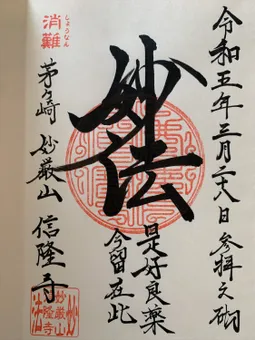 令和五年三月二十八日 参拝之砌
妙法
是好良薬
今留在此
しょうなん
消難
茅ヶ崎 妙厳山 信隆寺
妙厳山
信隆寺